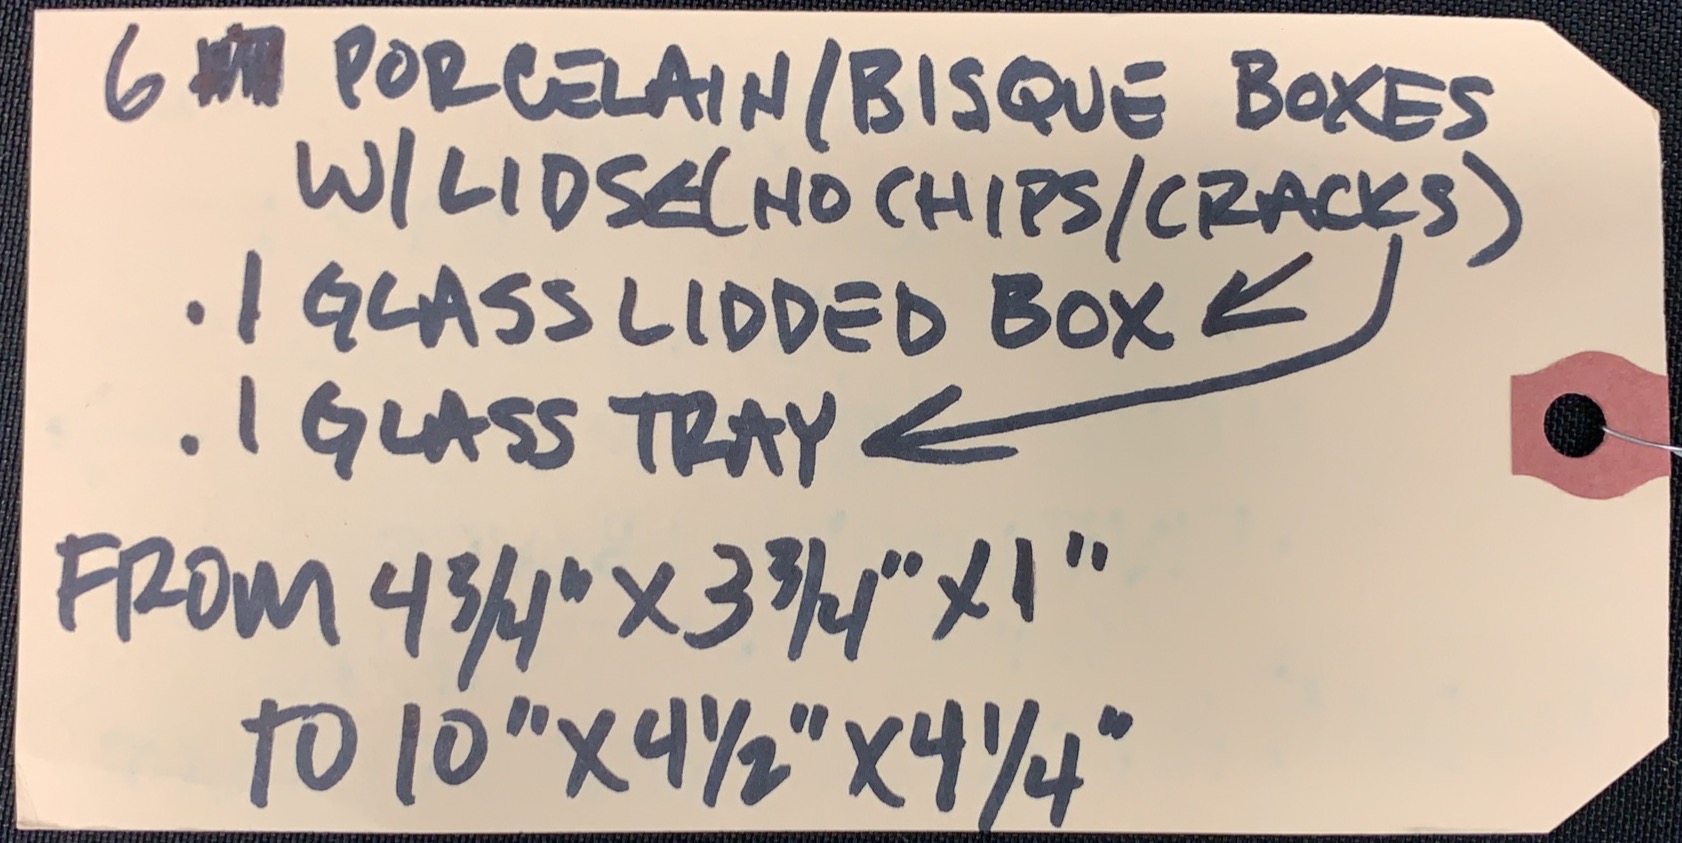 6 PORCELAIN/BISQUE BOXES
W/LIDS (NO CHIPS/CRACKS)
. 1 GLASS LIDDED BOX
. 1 GLASS TRAY
FROM 4 3/4" X 3 3/4" X 1"
TO 10" X 4 1/2" X 4 1/4"